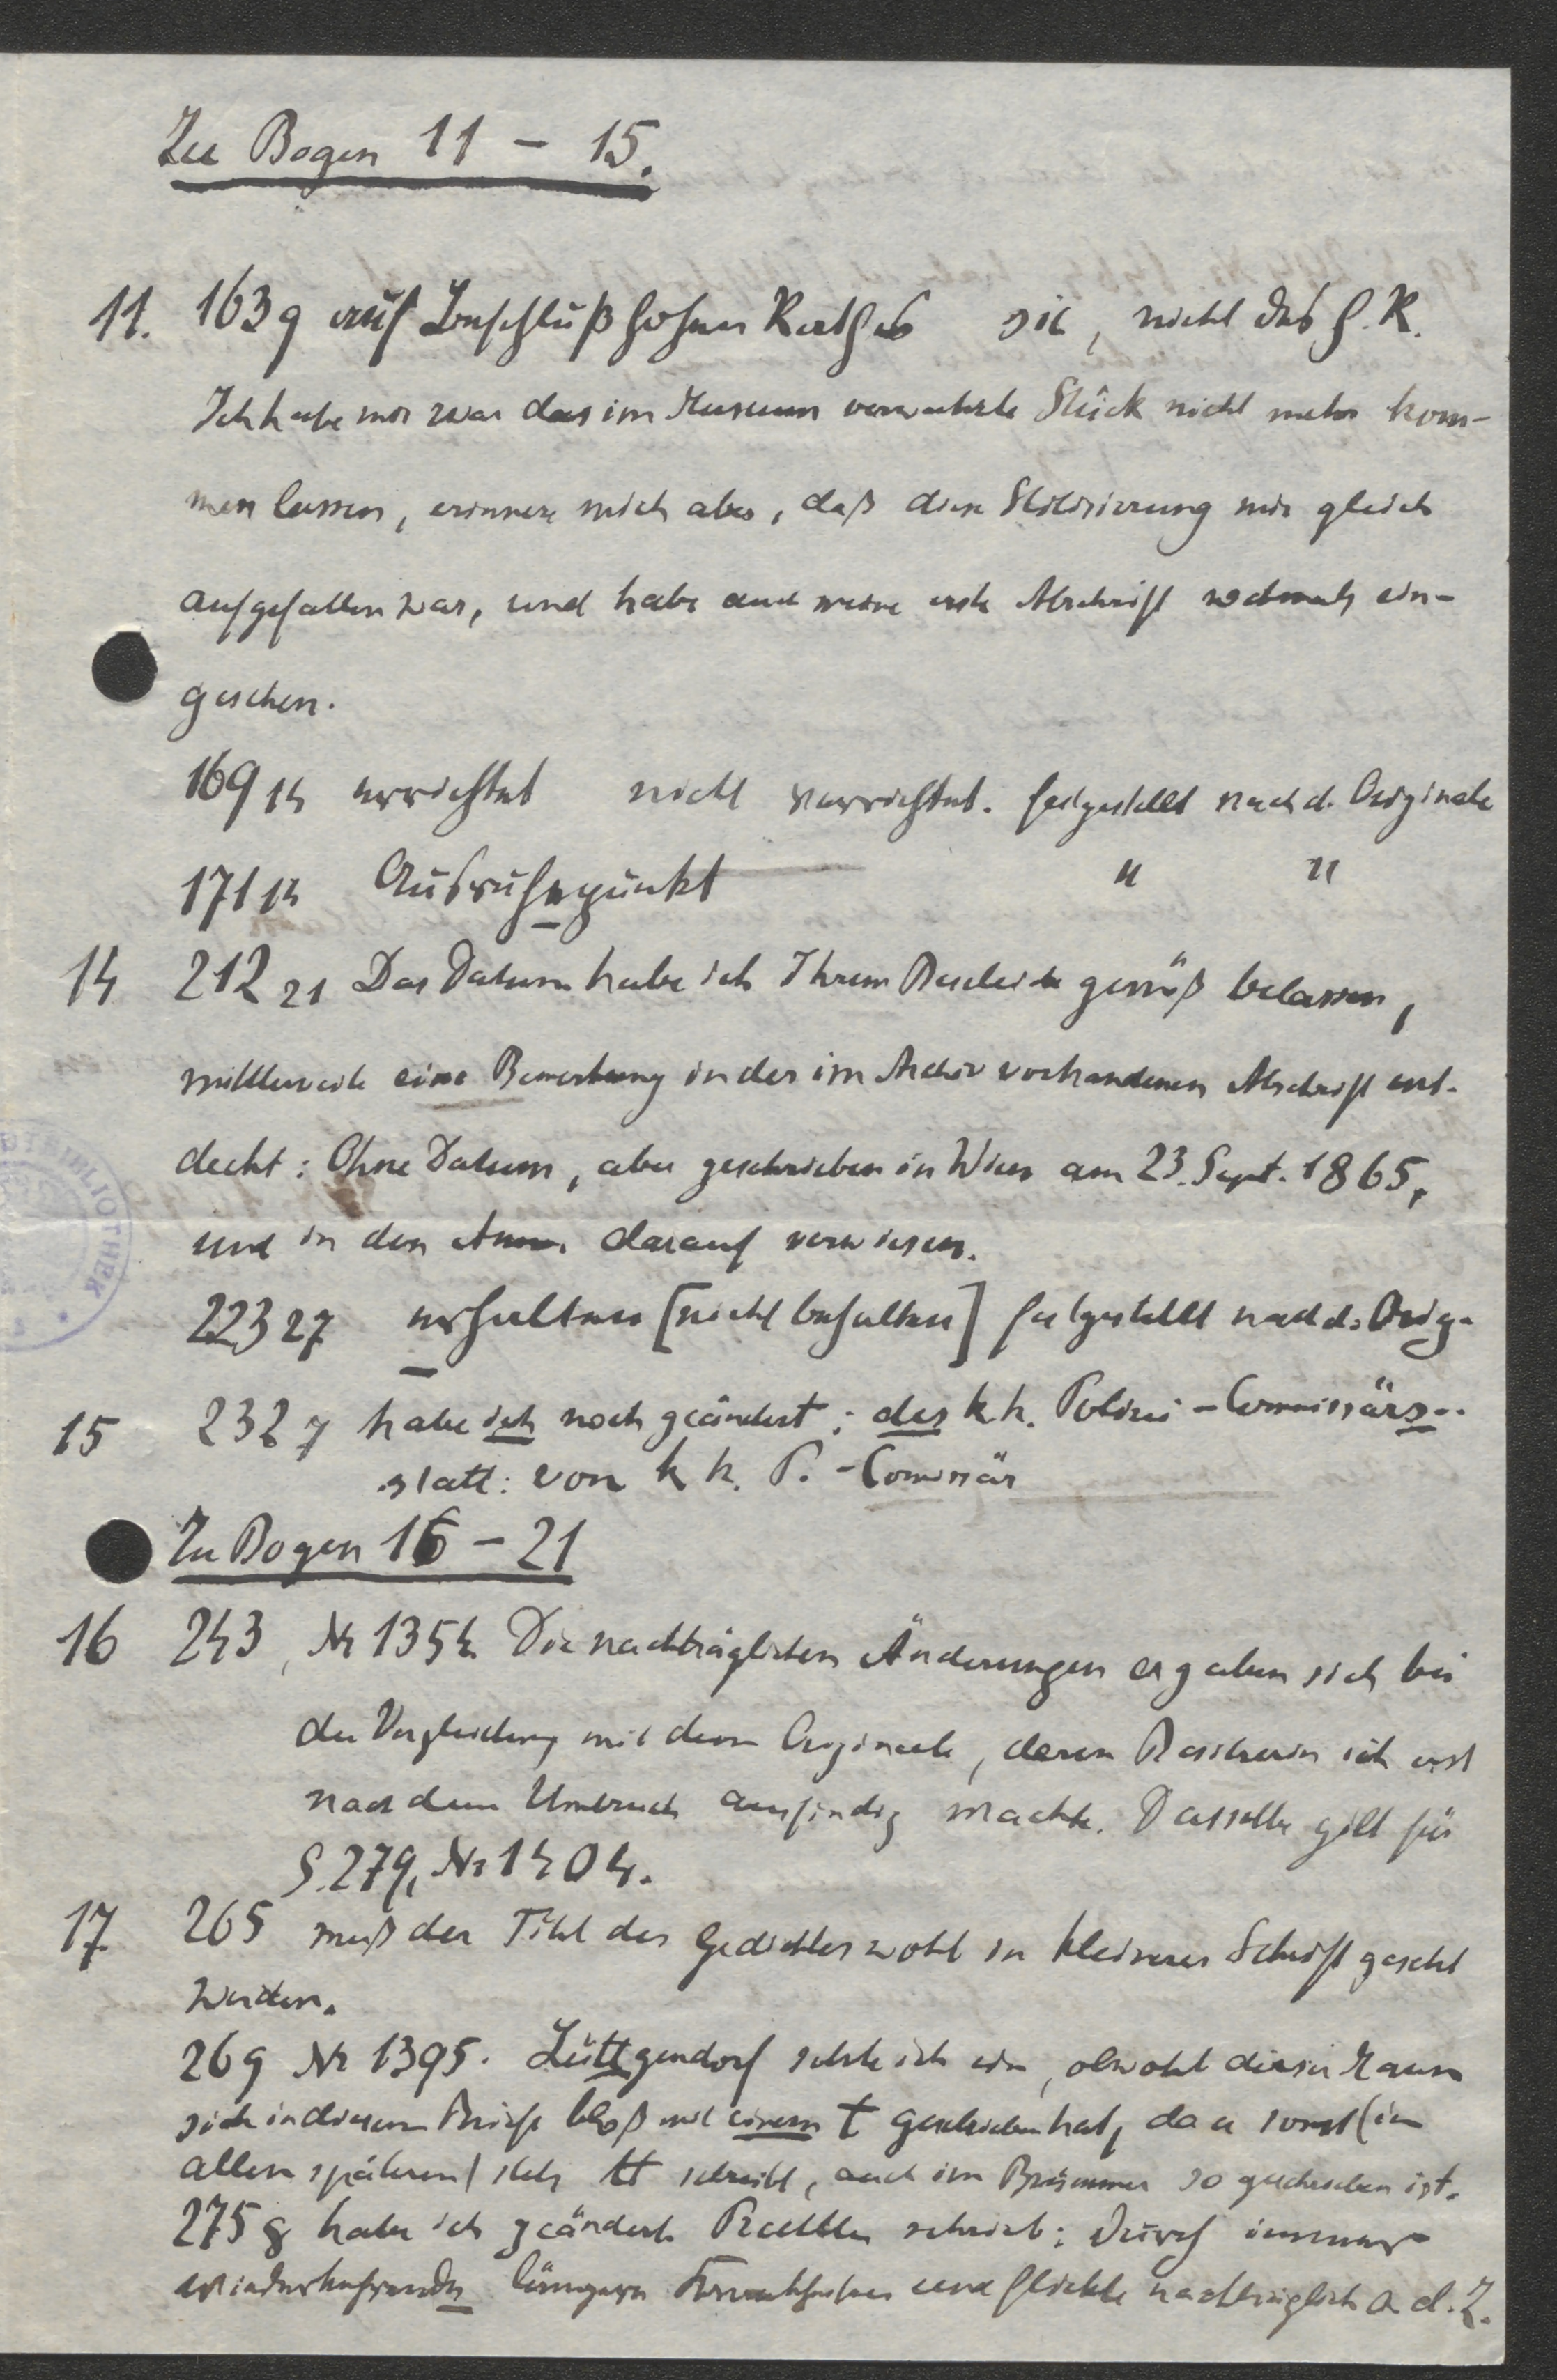 Zu Bogen 11 – 15.
11. 163 9 auf Beschluß hohen Rathes sic, nicht des h. R.
Ich habe mir zwar das im Museum verwahrte Stück nicht mehr kom-
men lassen, erinnere mich aber, daß diese Stilisierung mir gleich
aufgefallen war, und habe auch meine erste Abschrift nochmals ein-
gesehen.
169 14 errichtet nicht verrichtet. festgestellt nach d. Originale
171 14 Ausruhepunkt " "
14 212 21 Das Datum habe ich Ihrem Bescheide gemäß belassen,
mittlerweile eine Bemerkung in der im Archiv vorhandenen Abschrift ent-
deckt: Ohne Datum, aber geschrieben in Wien am 23. Sept. 1865,
und in den Anm. darauf verwiesen.
223 27 erhalten [nicht behalten] festgestellt nach d. Orig.
15 232 7 habe ich noch geändert: des k. k. Polizei-Commissärs..
statt: von k k. P.-Comissär
Zu Bogen 16 – 21
16 243, Nr 1354 Die nachträglichen Änderungen ergaben sich bei
der Vergleichung mit dem Originale, deren Besitzerin ich erst
nach dem Umbruch ausfindig machte. Dasselbe gilt für
S. 279, Nr 1404.
17. 265 muß der Titel des Gedichtes wohl in kleinerer Schrift gesetzt
werden.
269 Nr 1395. Lüttgendorf setzte ich ein, obwohl dieser Mann
sich in diesem Briefe bloß mit einem t geschrieben hat, da er sonst (in
allen späteren) stets tt schreibt, auch im Brümmer so geschrieben ist.
275 8 habe ich geändert. schrieb: durch immer
wiederkehrende längere und flickte nachträglich a. d. Z.